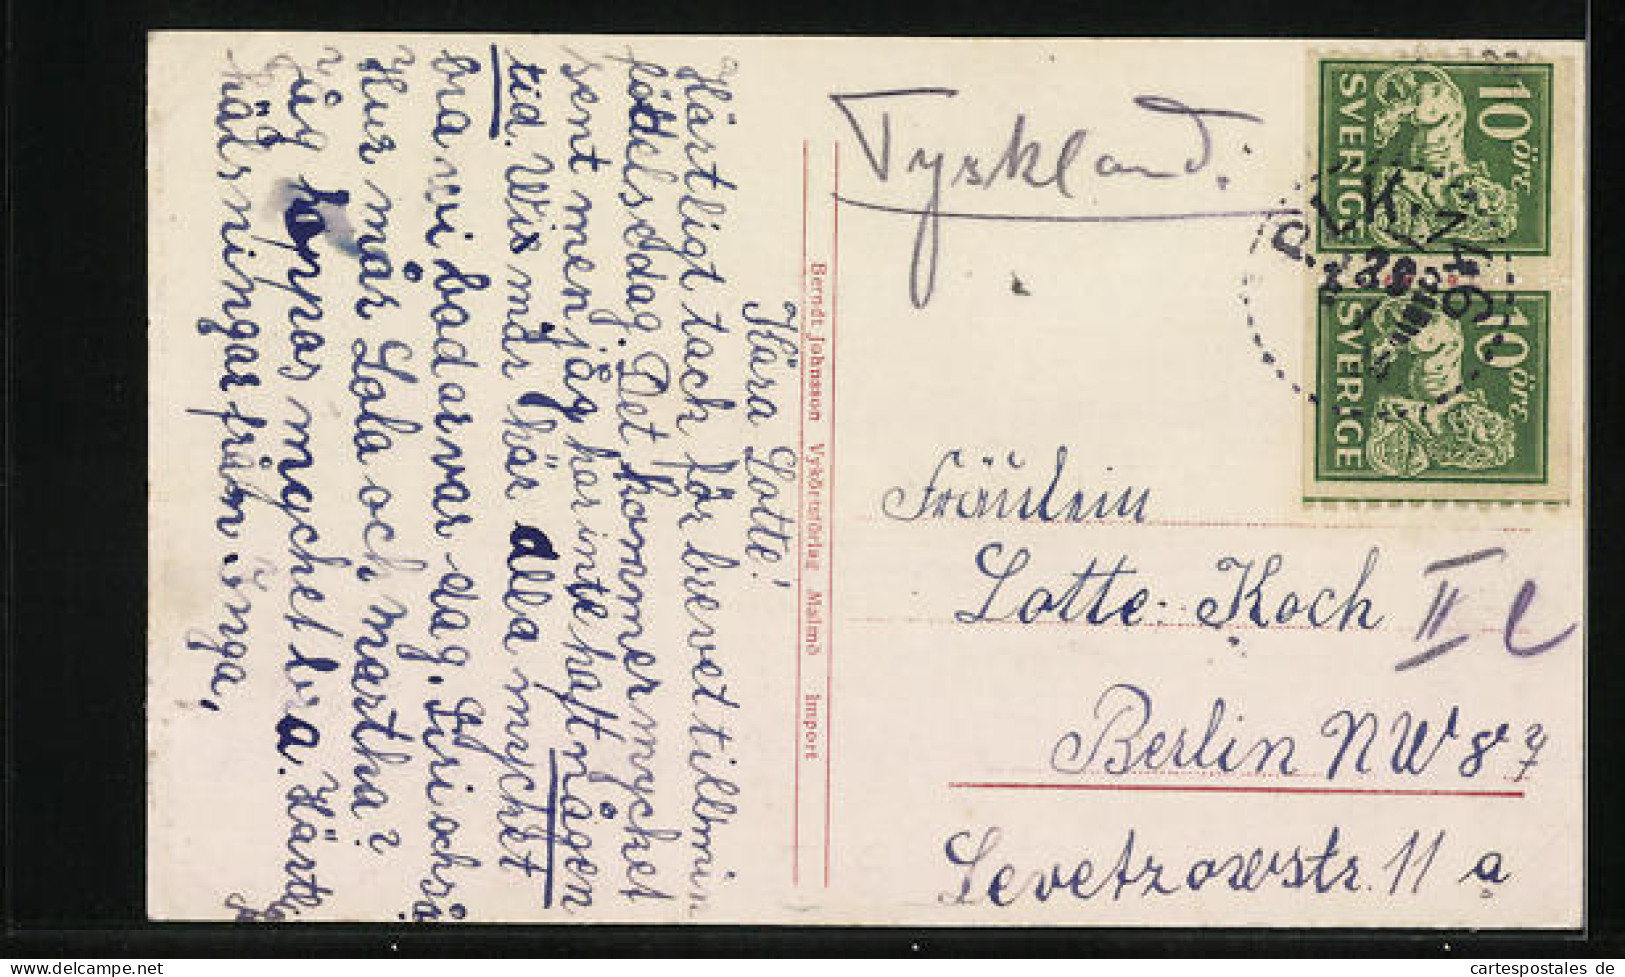 Kära Lotte!
Härtligt tach för brevet till min
födelsedag. Det kommer mycket
sent men jåg har inte haft någen
tid. Wi mår här alla mycket
bra wi badar var dag. Siri ochså
Hur mår Lola och Martha?
jåg hoppas mychet bra. Härtli
hälsningar från inga,
Berndt Johnsson Vykortsförlag Malmö Import
Tyskland.
10 öre
SVERIGE
10 öre
SVERIGE
Fräulein
Lotte Koch II
Berlin NW 87
Levetzowstr. 11 a
cartespostales de